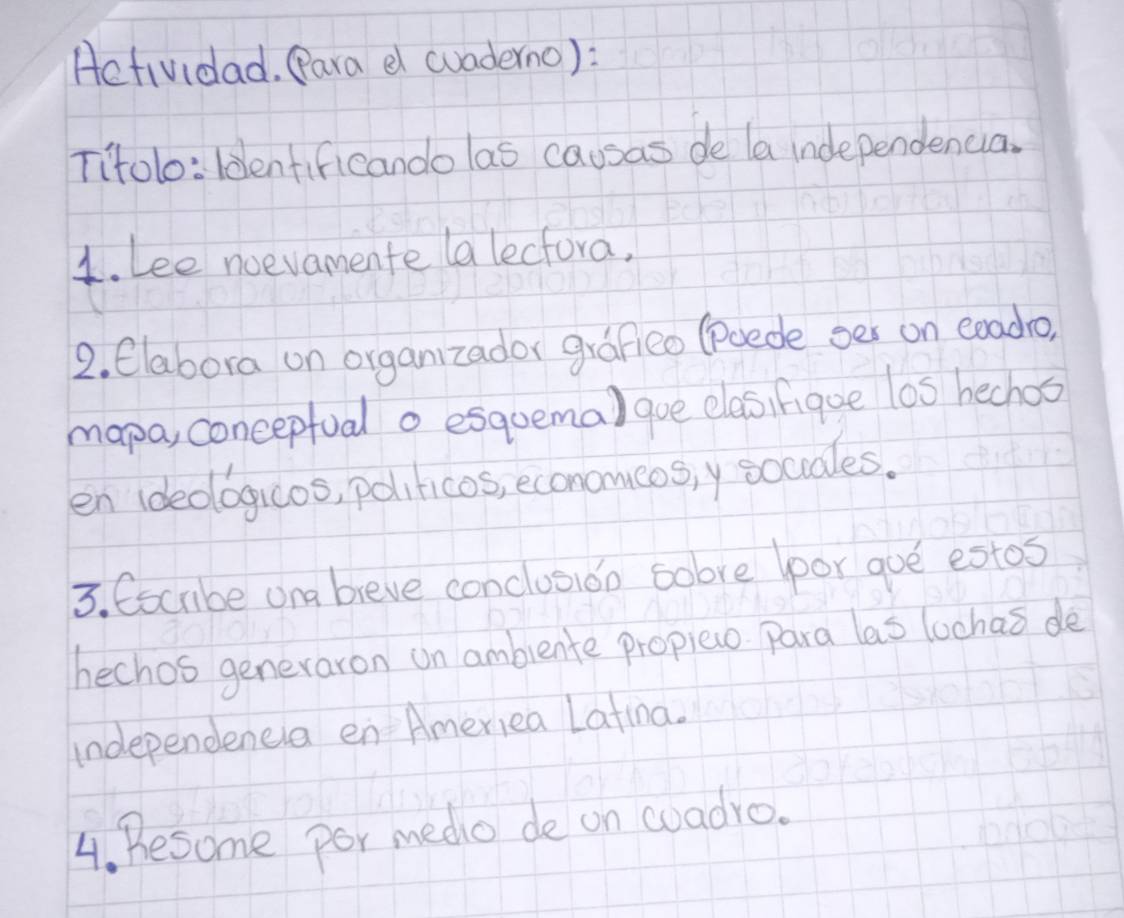 Actividad. (Para el cuaderno):
Título: Identificando las causas de la independencia.
1. Lee nuevamente la lectura.
2. Elabora un organizador gráfico (Puede ser un cuadro,
mapa, conceptual o esquema) que clasifique los hechos
en ideológicos, políticos, economicos, y sociales.
3. Escribe una breve conclusión sobre por qué estos
hechos generaron un ambiente propicio. Para las luchas de
independencia en America Latina.
4. Resume por medio de un cuadro.